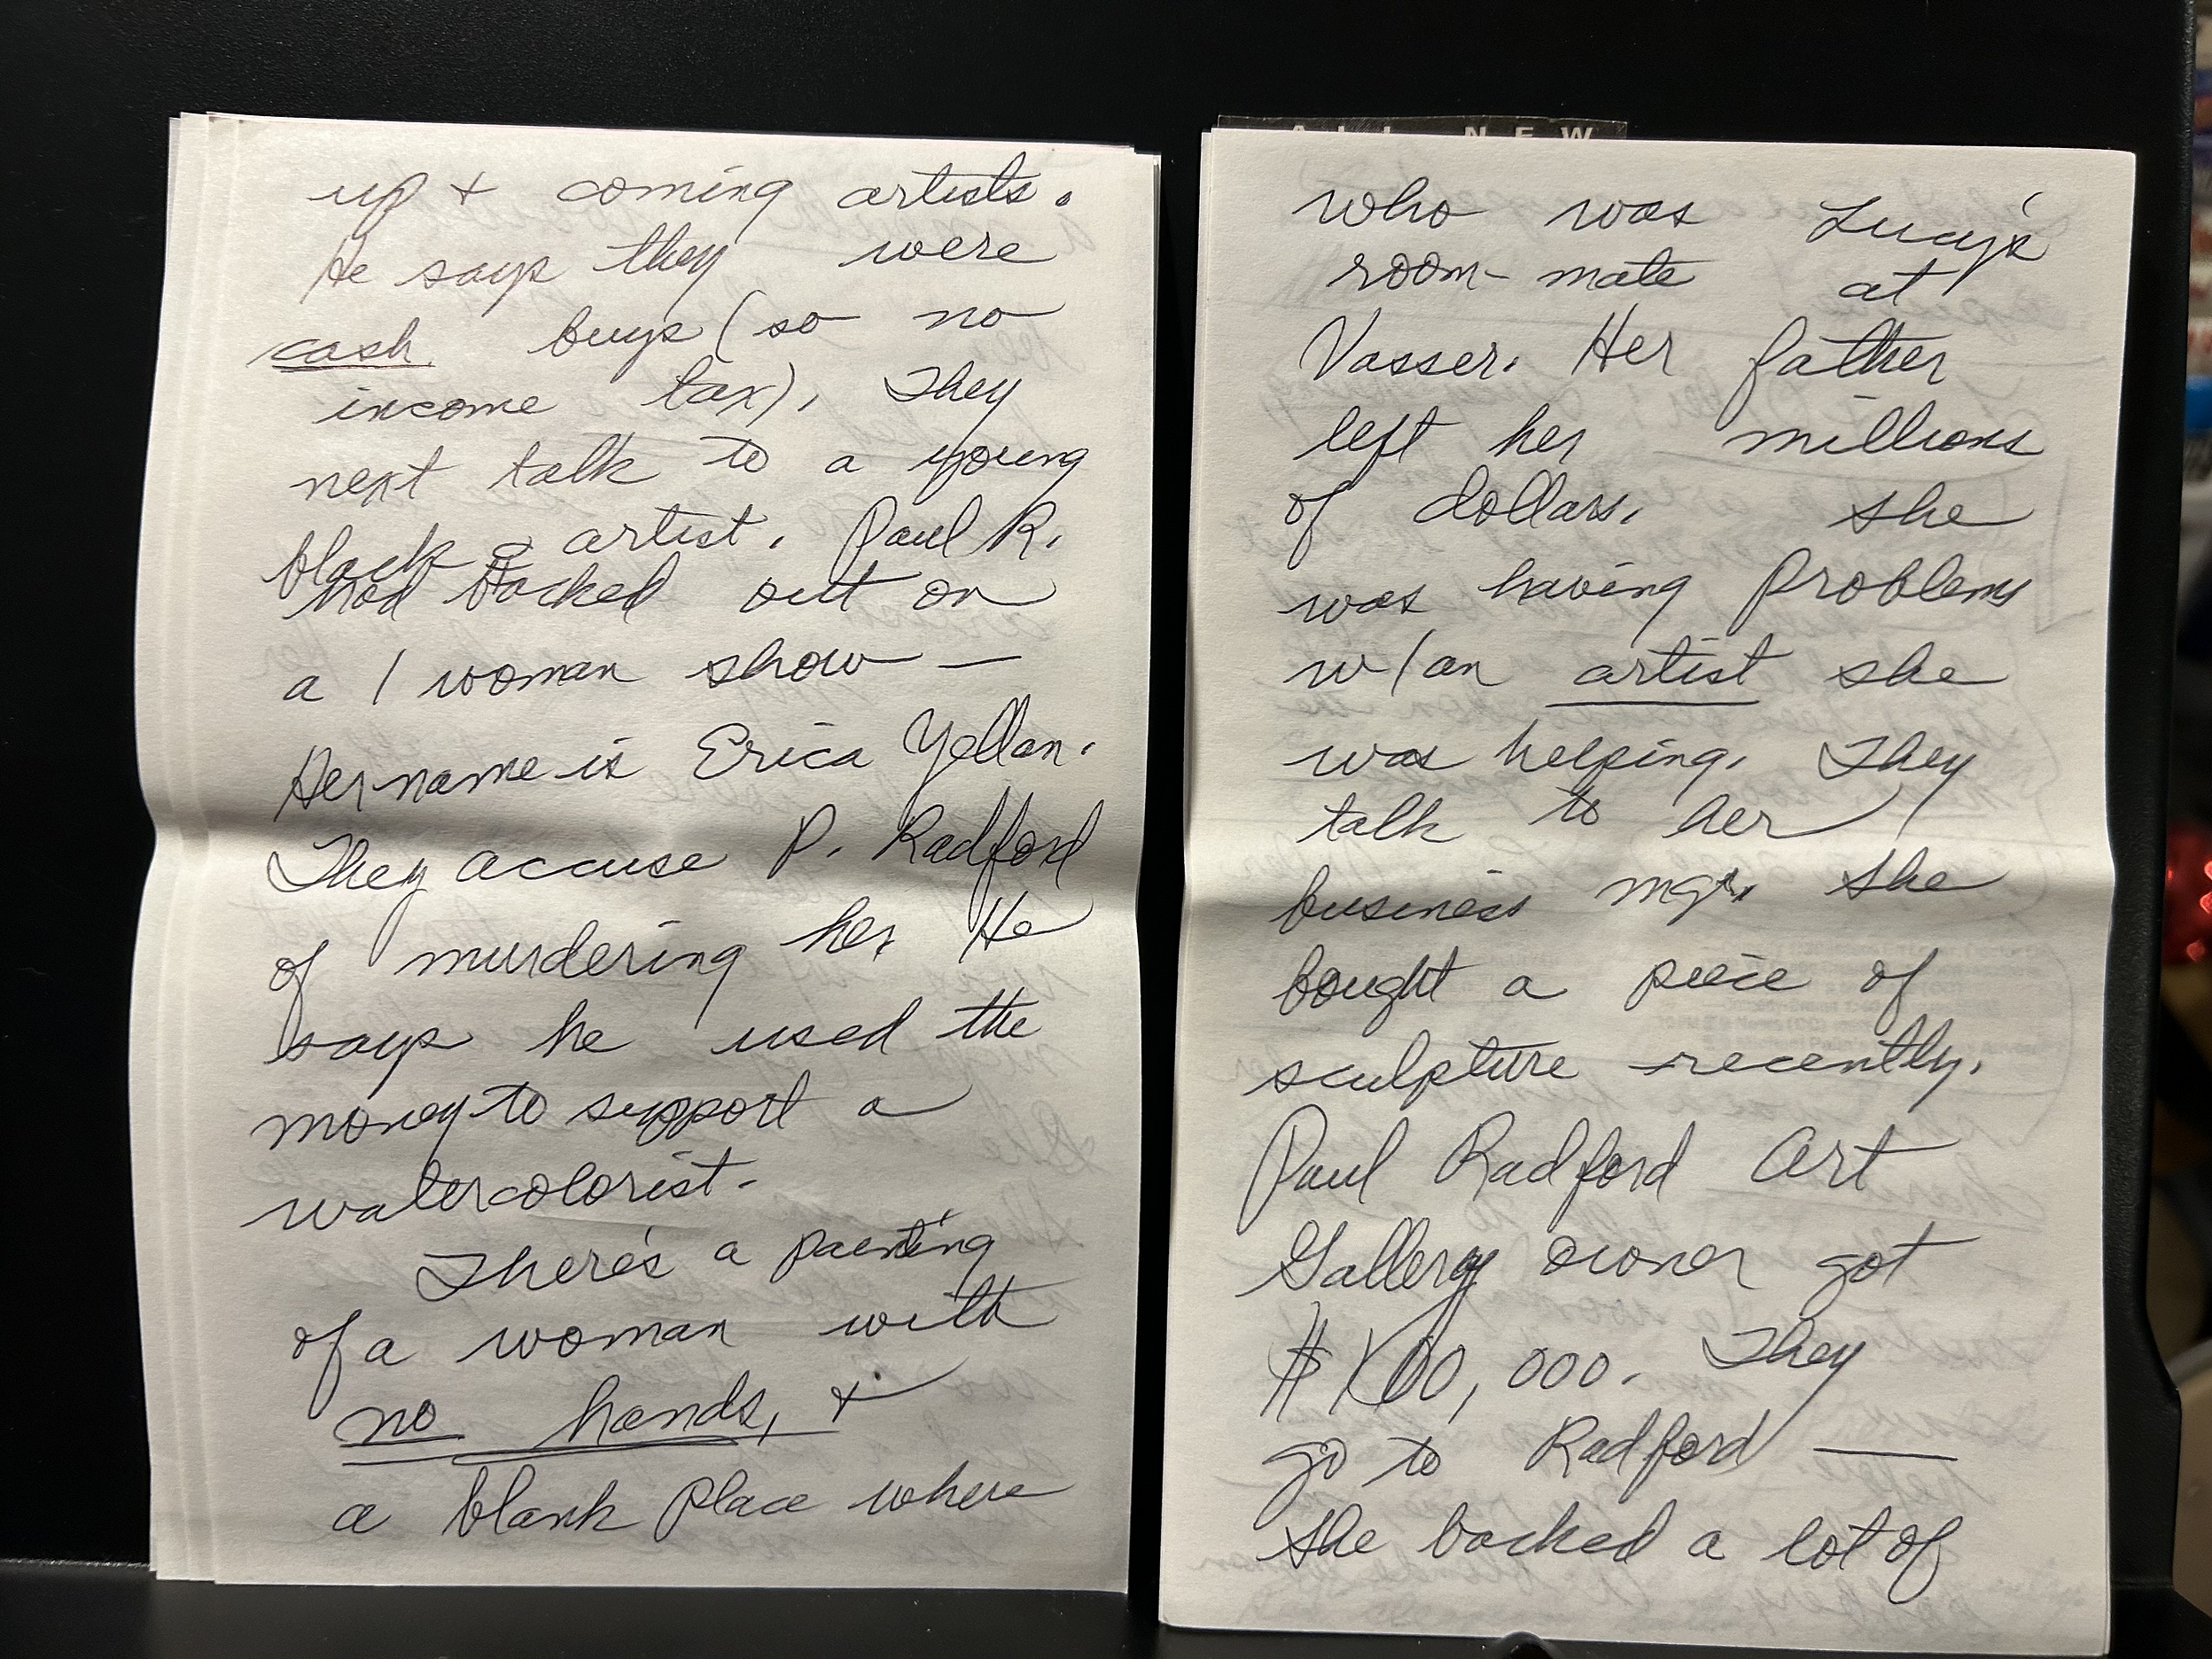 up + coming artists.
He says they were
cash buys (so no
income tax). They
next talk to a young
black artist. Paul R.
had backed out on
a 1 woman show —
Her name is Erica Yellan.
They accuse P. Radford
of murdering her. He
says he used the
money to support a
watercolorist.
There's a painting
of a woman with
no hands, +
a blank place where
ALL NEW
who was Lucy's
room-mate at
Vasser. Her father
left her millions
of dollars. She
was having problems
w/an artist she
was helping. They
talk to her
business mgr. She
bought a peice of
sculpture recently.
Paul Radford Art
Gallery owner got
$100,000. They
go to Radford —
She backed a lot of